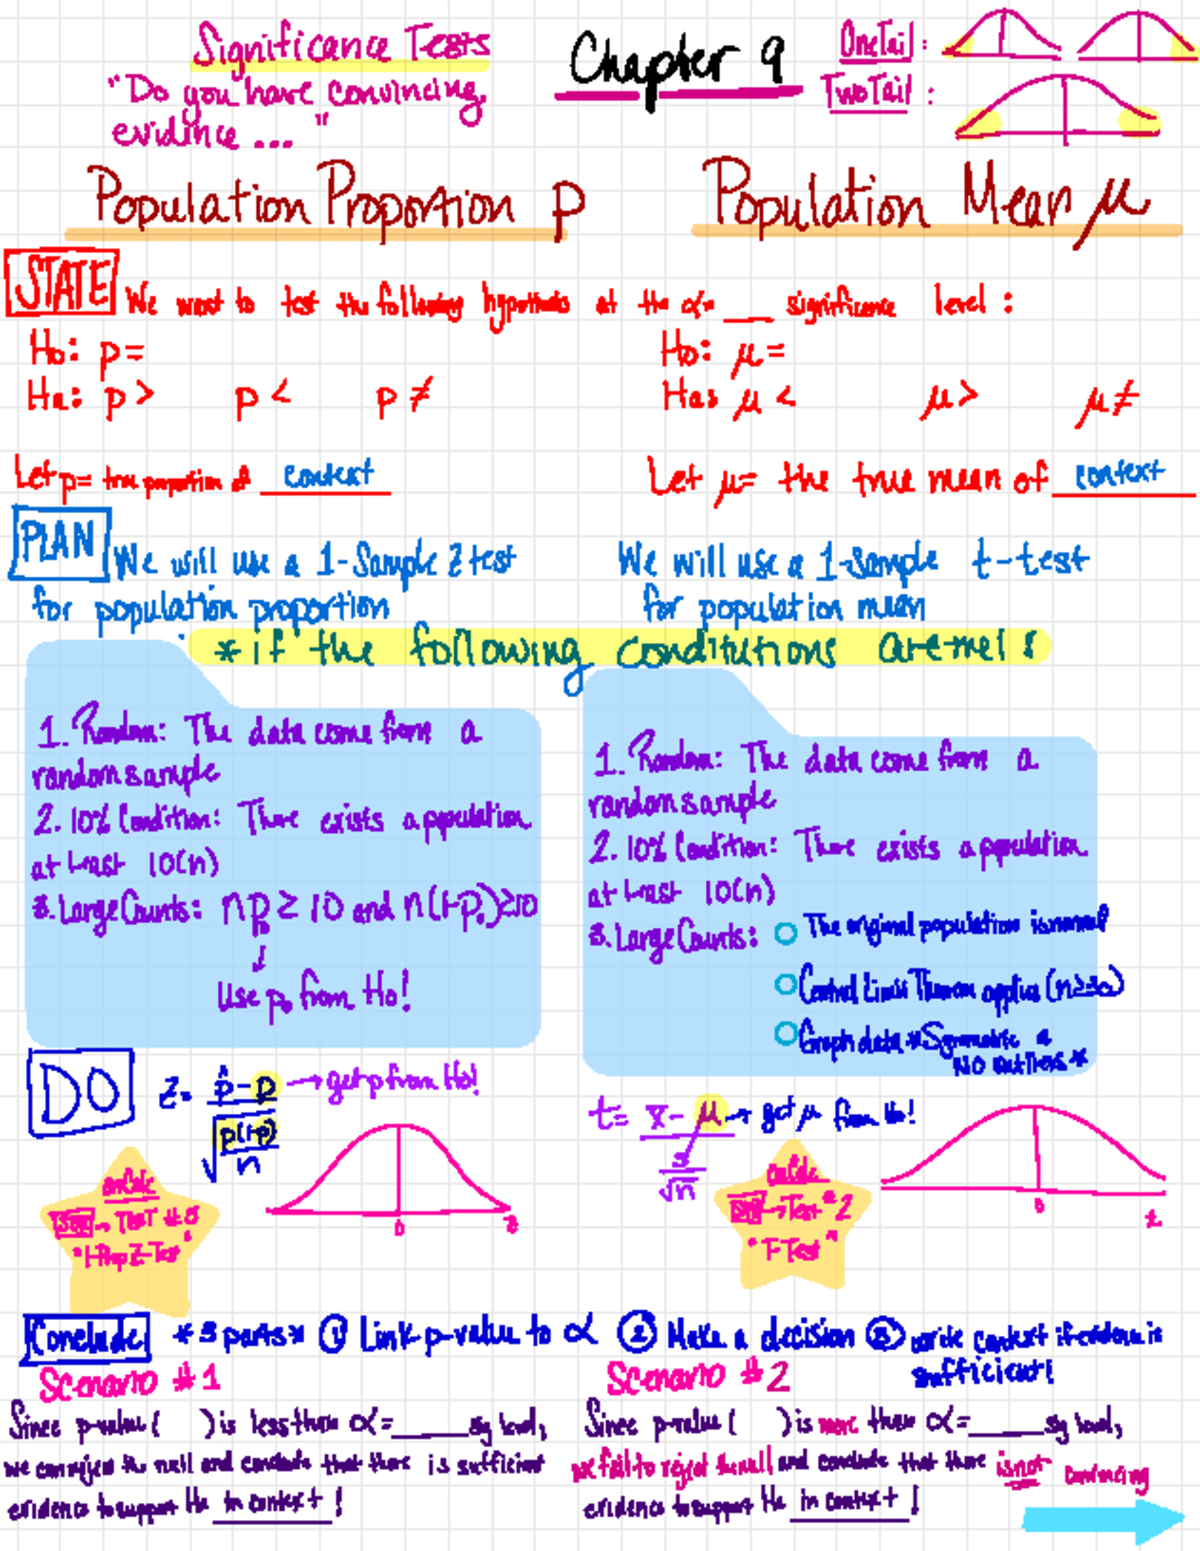 Significance Tests
"Do you have convincing
evidence ... "
Chapter 9
One Tail :
Two Tail :
Population Proportion p
Population Mean μ
STATE We want to test the following hypothesis at the α= __ significance level :
Ho: p=
Ha: p > p < p ≠
Ho: μ=
Ha: μ < μ > μ ≠
Let p= true proportion of context
Let μ= the true mean of context
PLAN We will use a 1-Sample Z test
for population proportion
We will use a 1-sample t-test
for population mean
*if the following conditutions are met :
1. Random: The data come from a
random sample
2. 10% Condition: There exists a population
at least 10(n)
3. Large Counts: np₀ ≥ 10 and n(1-p₀) ≥ 10
↓
Use p₀ from Ho!
1. Random: The data come from a
random sample
2. 10% Condition: There exists a population
at least 10(n)
3. Large Counts: ○ The original population is normal
○ Central Limit Theorem applies (n≥30)
○ Graph data * Symmetric &
NO outliers *
DO z = p̂ - p / √(p(1-p)/n) → get p from Ho!
0 z
on Calc
→ TEST #5
"1-Prop Z-Test"
t = x̄ - μ / s/√n → get μ from Ho!
0 t
on Calc
→ Test #2
"T-Test"
Conclude *3 parts* ① Link p-value to α ② Make a decision ③ write context if evidence is
sufficient!
Scenario #1
Since p-value ( ) is less than α=____ sig level,
we can reject the null and conclude that there is sufficient
evidence to support Ha in context !
Scenario #2
Since p-value ( ) is more than α=____ sig level,
we fail to reject the null and conclude that there is not convincing
evidence to support Ha in context !